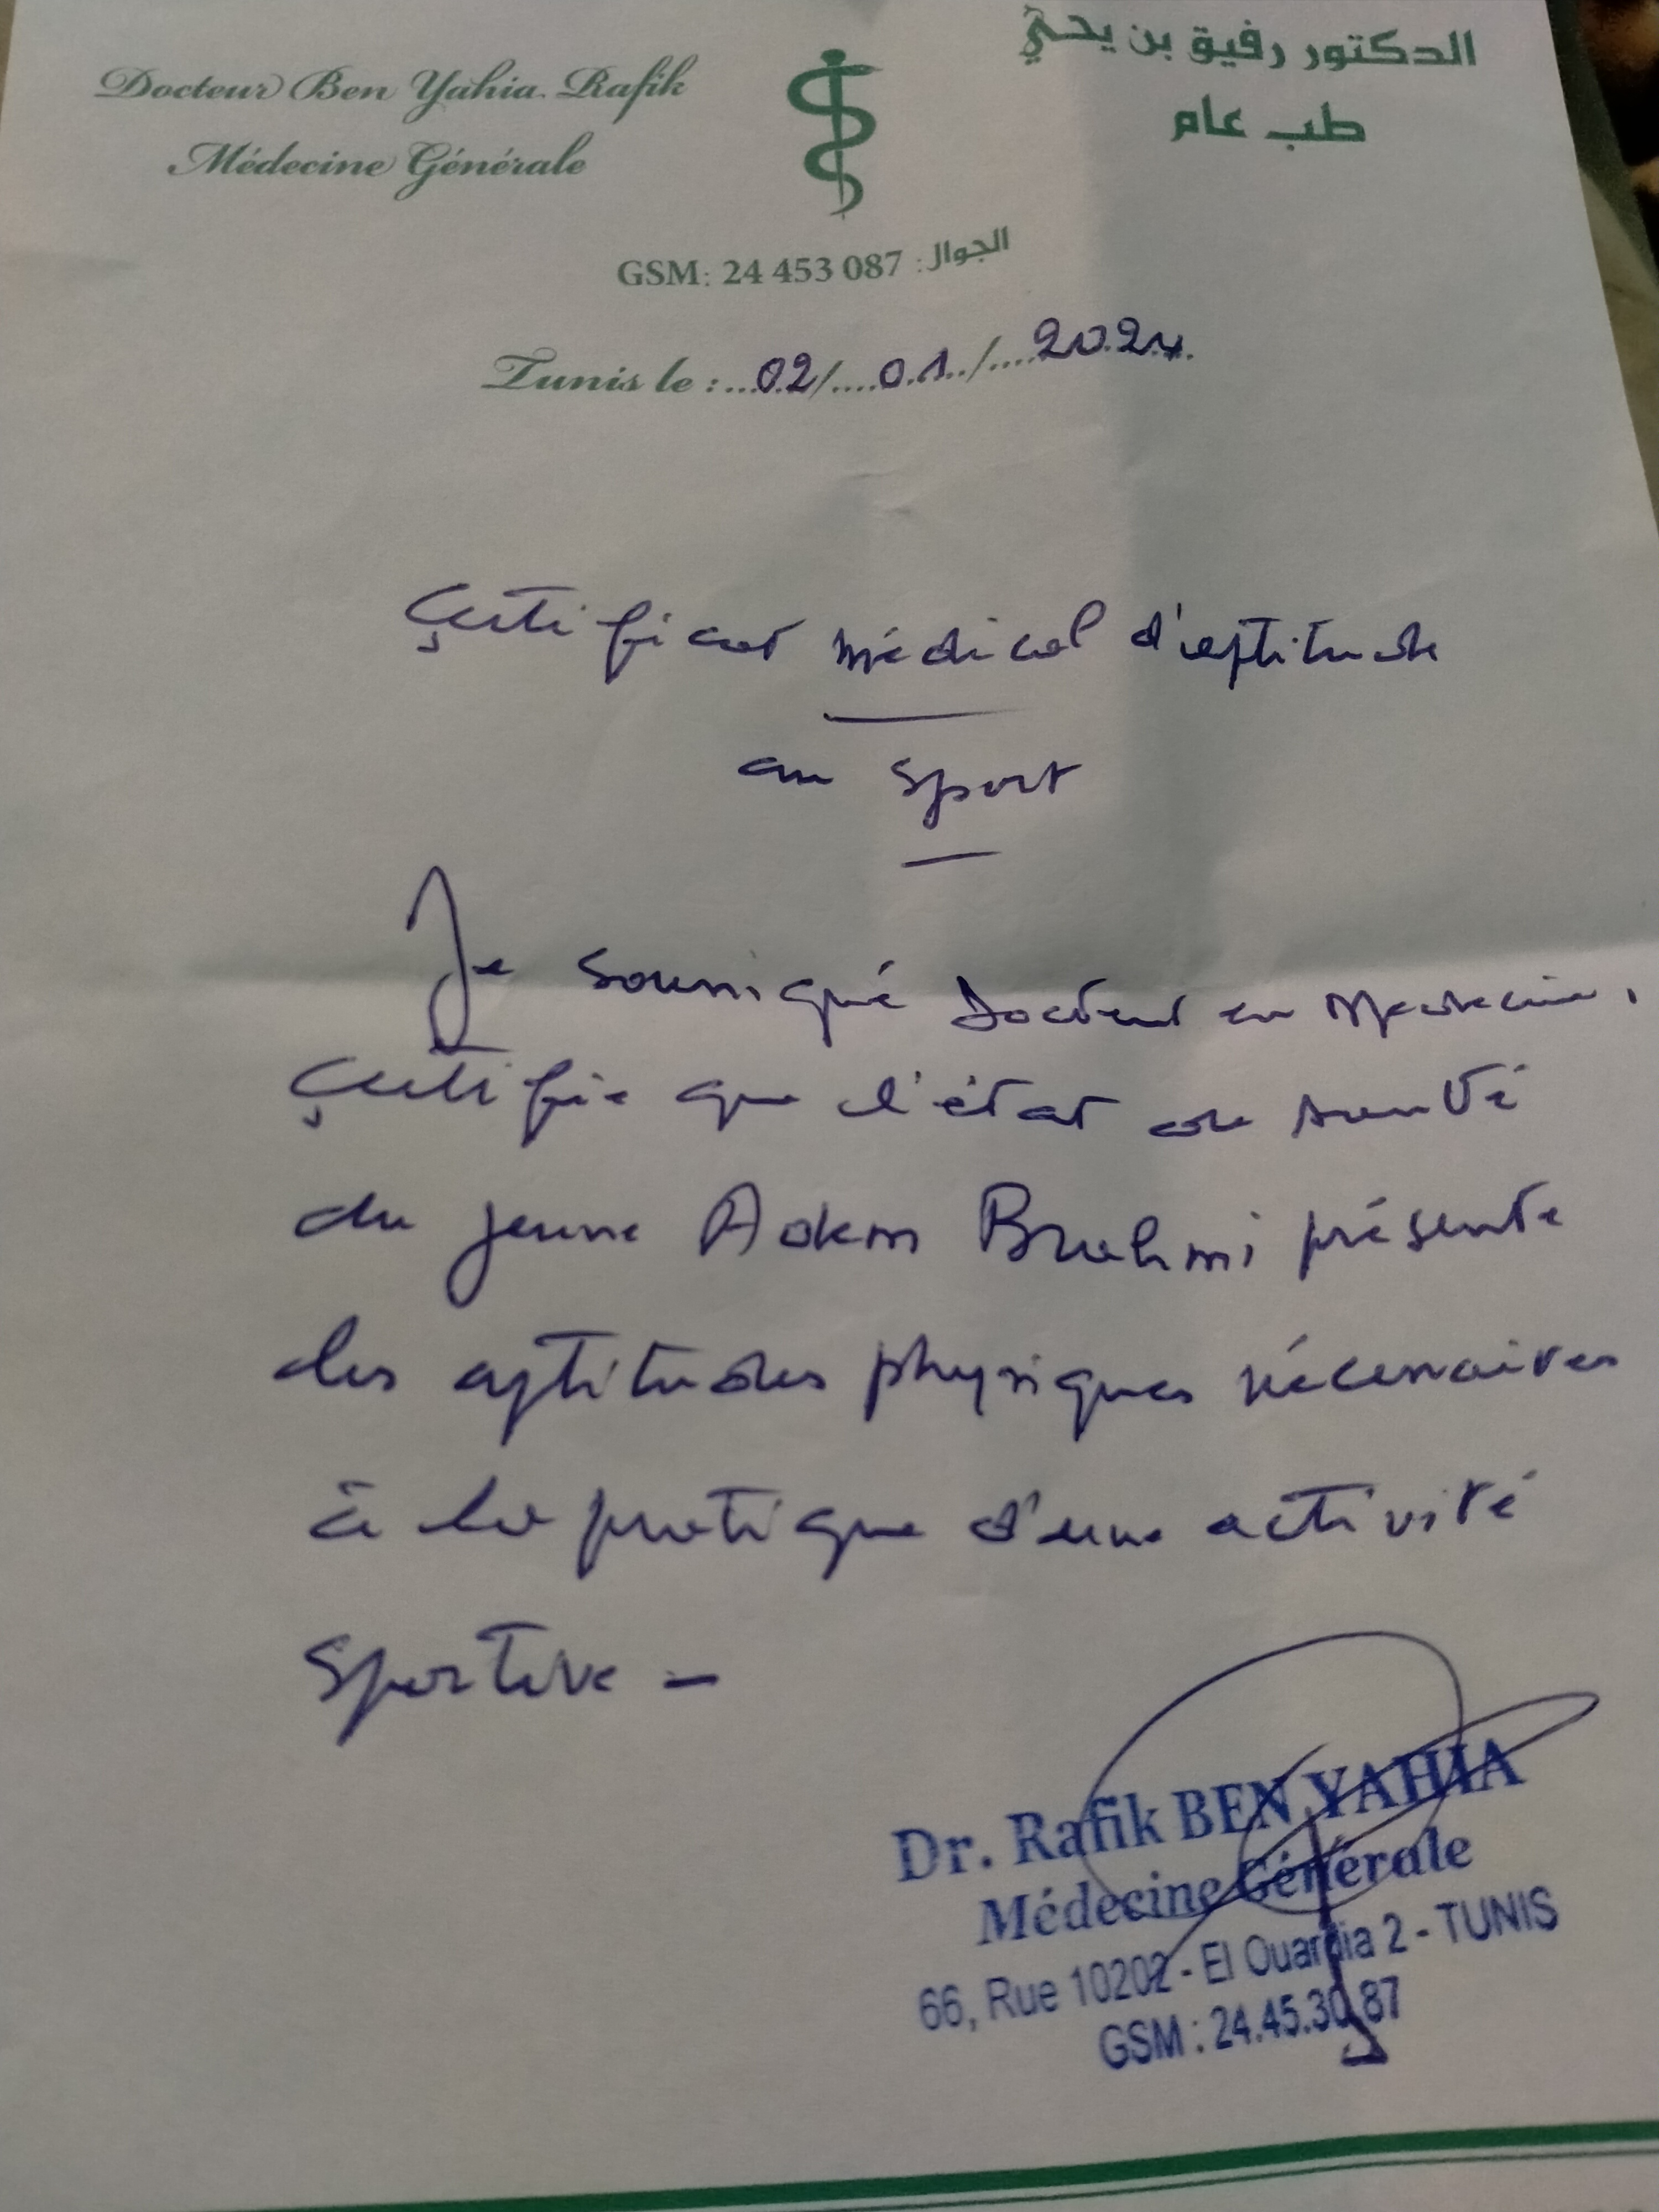 Docteur Ben Yahia Rafik
Médecine Générale
الدكتور رفيق بن يحيى
طب عام
GSM: 24 453 087 :الجوال
Tunis le : 02/ 01 / 2024
Certificat médical d'aptitude
au sport
Je soussigné Docteur en Medecine,
Certifie que l'état de santé
du jeune Adem Brahmi présente
les aptitudes physiques nécessaires
à la pratique d'une activité
Sportive -
Dr. Rafik BEN YAHIA
Médecine Générale
66, Rue 10202 - El Ouardia 2 - TUNIS
GSM : 24.45.30.87